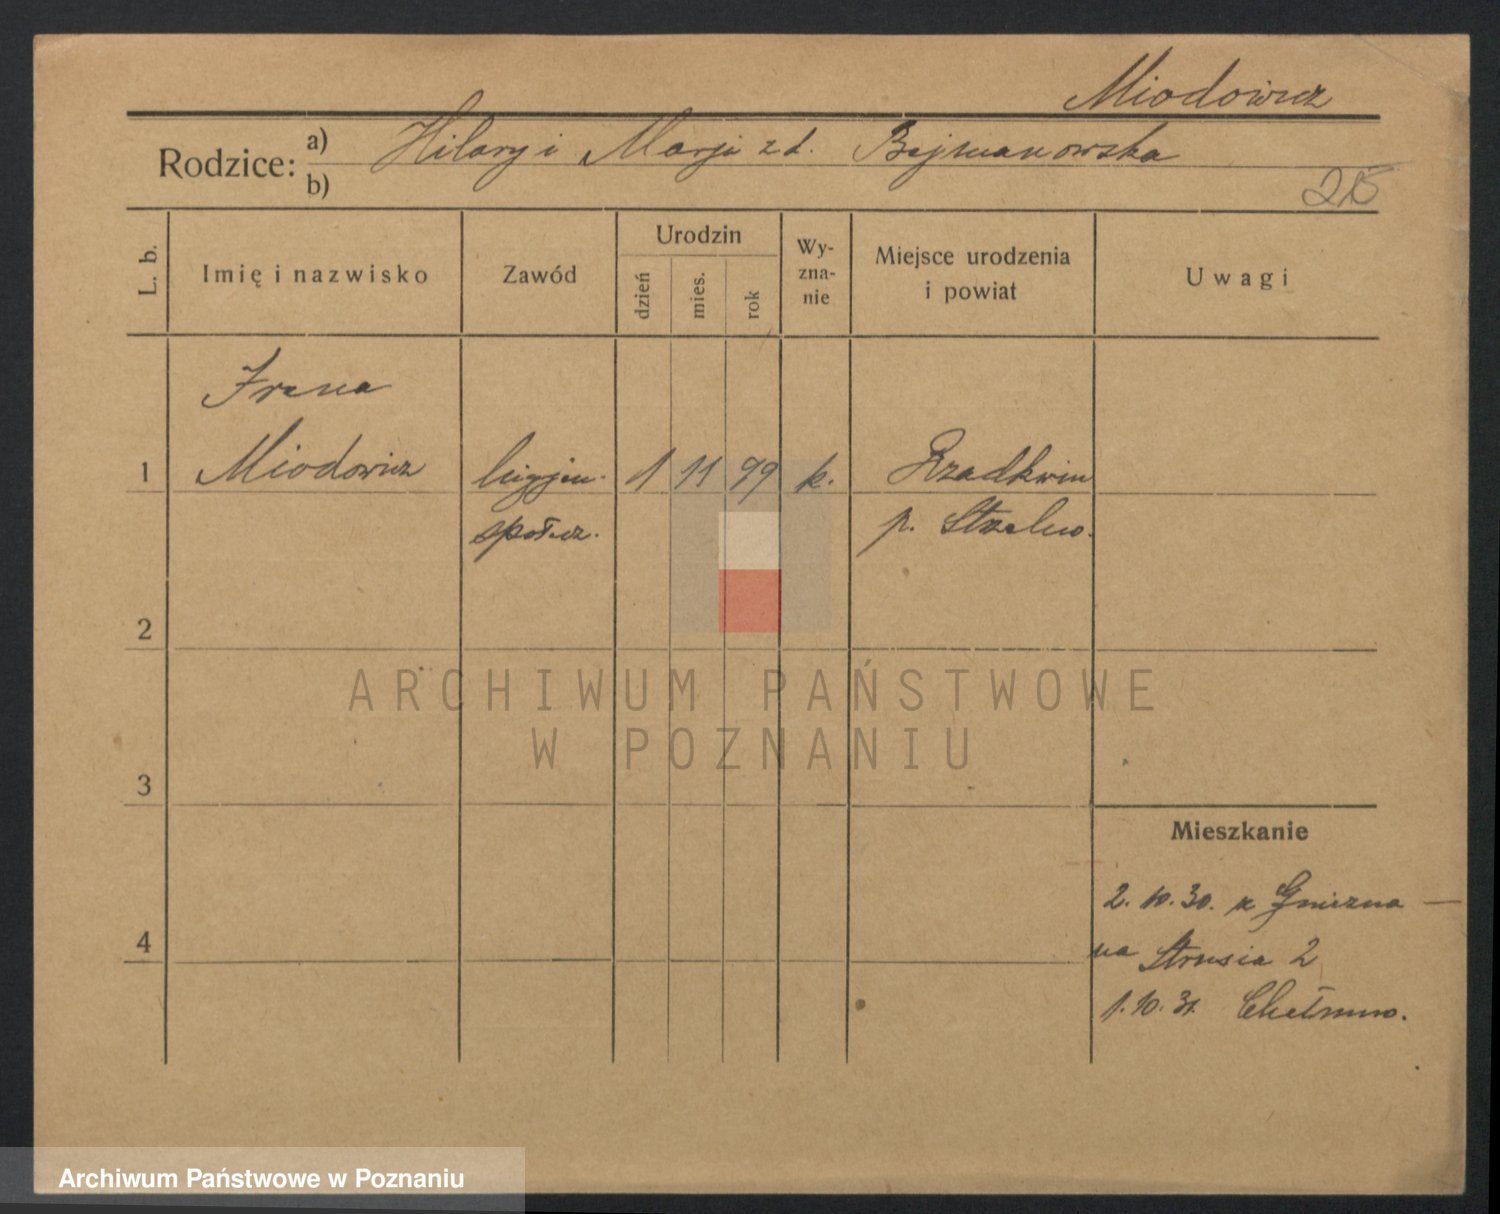 Miodowicz
Rodzice: a) Hilary i Marji z d. Bejmanowska
b)
215
L. b.
Imię i nazwisko
Zawód
Urodzin
dzień
mies.
rok
Wy-
zna-
nie
Miejsce urodzenia
i powiat
Uwagi
Irena
1 Miodowicz higjen. 1 11 99 k. Rzadkwin
społecz. p. Strzelno.
2
3
4
Mieszkanie
2.10.30. z Gniezna —
na Strusia 2
1.10.31. Chełmno.
ARCHIWUM PAŃSTWOWE
W POZNANIU
Archiwum Państwowe w Poznaniu